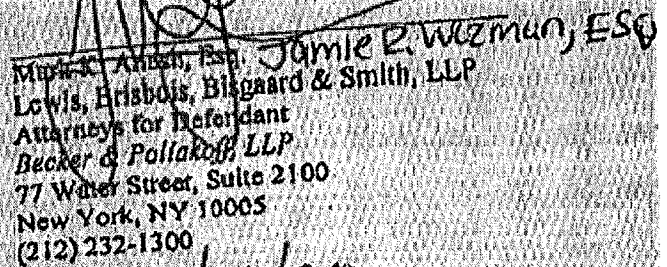 Esq. Jamie R. Wozman, ESQ
Lewis, Brisbois, Bisgaard & Smith, LLP
Attorneys for Defendant
Becker & Poliakoff, LLP
77 Water Street, Suite 2100
New York, NY 10005
(212) 232-1300